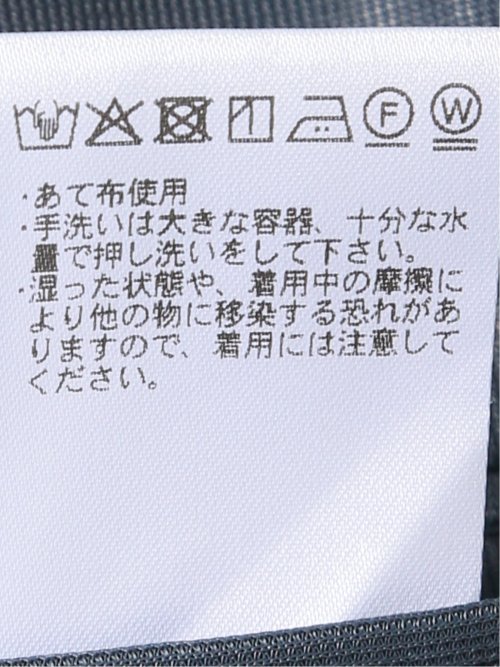 F W
・あて布使用
・手洗いは大きな容器、十分な水
量で押し洗いをして下さい。
・湿った状態や、着用中の摩擦に
より他の物に移染する恐れがあ
りますので、着用には注意して
ください。